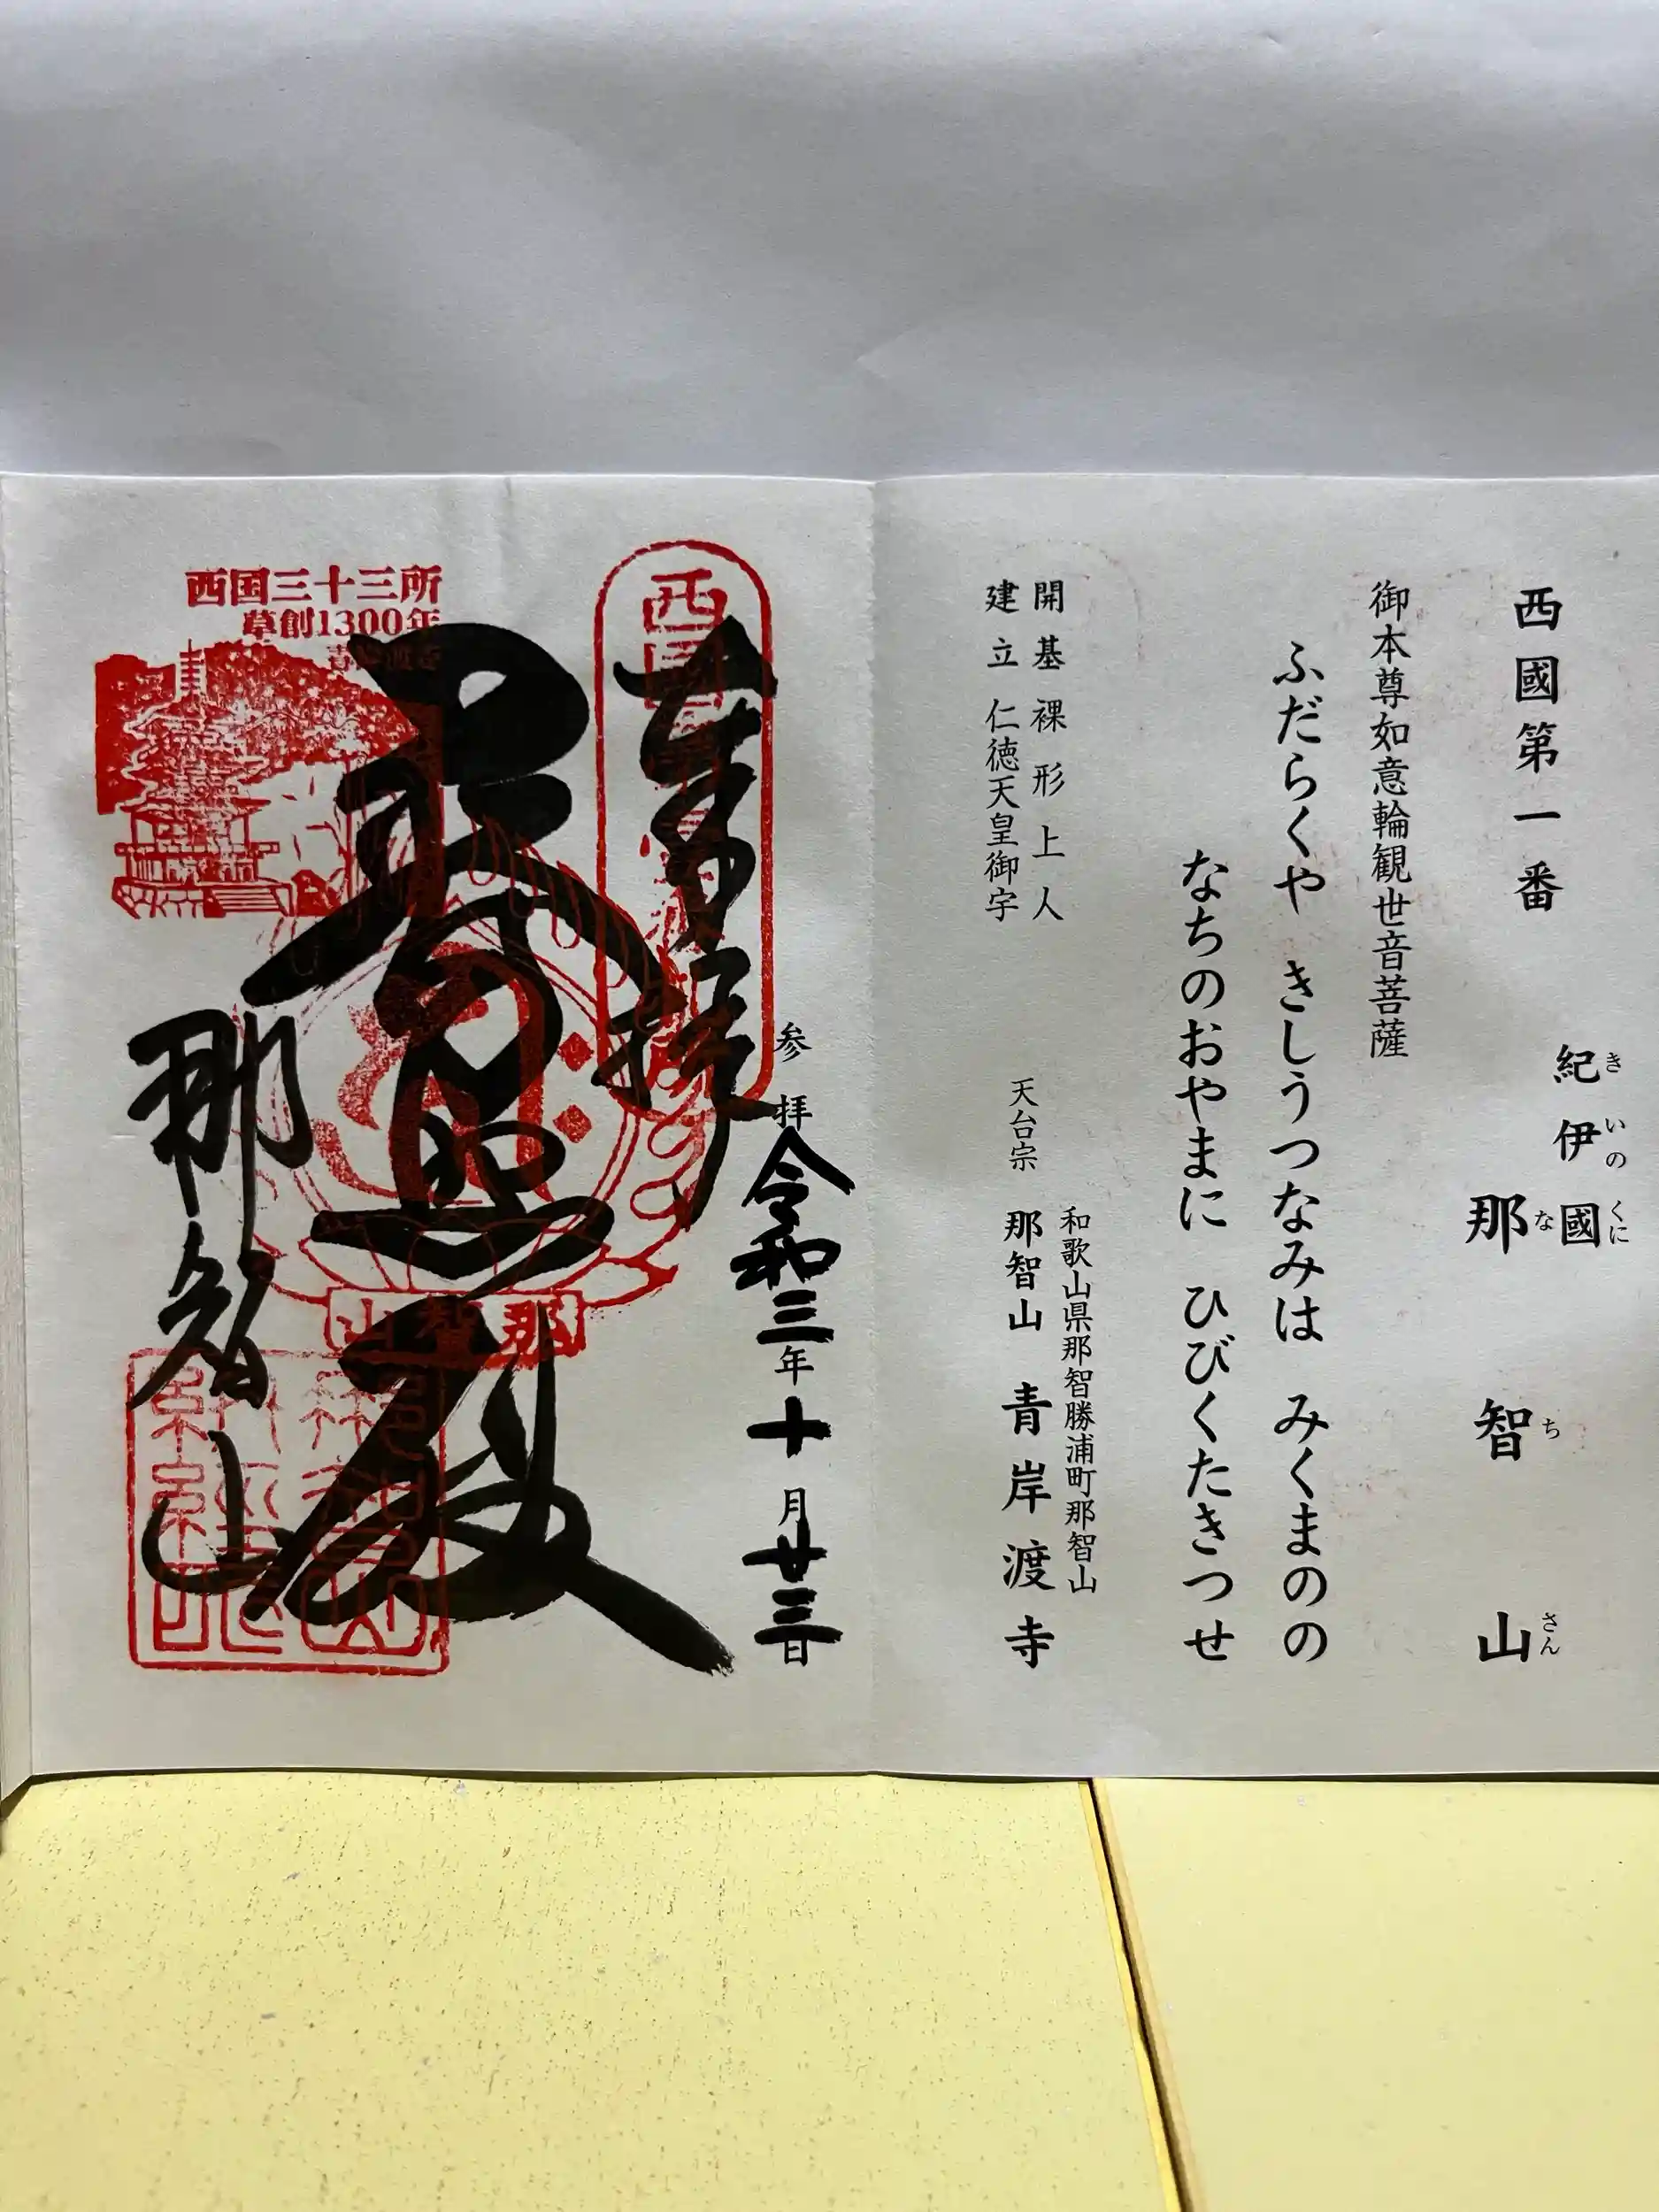 西國第一番
紀伊國
きいのくに
那智山
なちさん
御本尊如意輪観世音菩薩
ふだらくや きしうつなみは みくまのの
なちのおやまに ひびくたきつせ
開基 裸形上人
建立 仁徳天皇御宇
和歌山県那智勝浦町那智山
天台宗 那智山 青岸渡寺
参拝 令和三年十月廿三日
奉拝
普照殿
那智山
西国三十三所
草創1300年
青岸渡寺
那智山